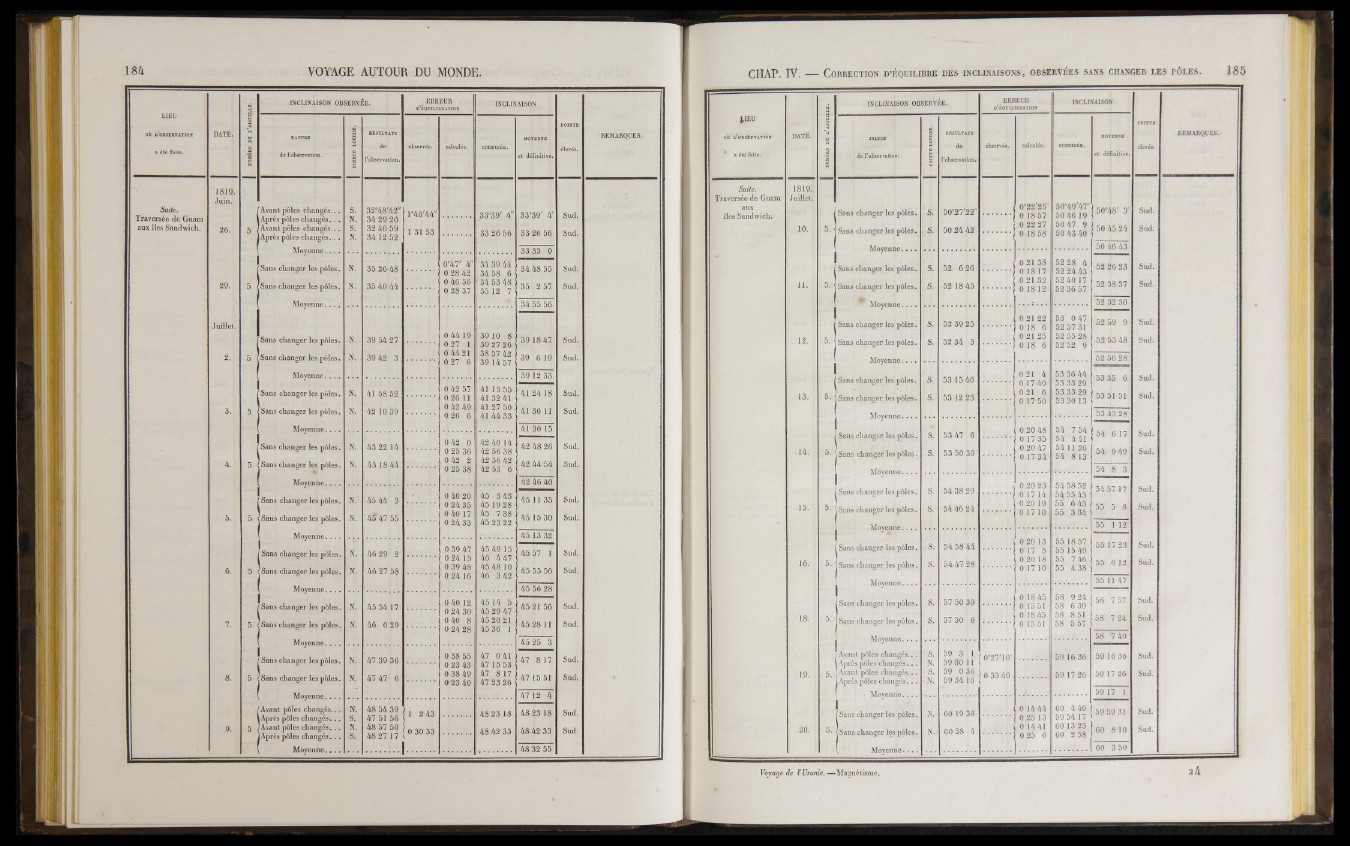 184 VOYAGE AUTOUR DU MONDE.
LIEU où L'OBSERVATION a été faite. | DATE. | NUMÉRO DE L'AIGUILLE. | INCLINAISON OBSERVÉE. | ERREUR D'ÉQUILIBRATION | INCLINAISON | POINTE élevée. | REMARQUES.
NATURE de l'observation. | POINTE LOURDE. | RÉSULTATS de l'observation. | observée. | calculée. | conclue. | MOYENNE et définitive.
Suite. Traversée de Guam aux îles Sandwich.
1819. Juin.
26. 5
Avant pôles changés... S. 32°48'42" 1°40'44" 33°39' 4" 33°39' 4" Sud.
Après pôles changés... N. 34 29 26
Avant pôles changés... S. 32 40 59 1 31 53 33 26 56 33 26 56 Sud.
Après pôles changés... N. 34 12 52
Moyenne.... 33 33 0
29. 5
Sans changer les pôles. N. 35 26 48 0°47' 4" 34 39 44 34 48 55 Sud.
0 28 42 34 58 6
Sans changer les pôles. N. 35 40 44 0 46 56 34 53 48 35 2 57 Sud.
0 28 37 35 12 7
Moyenne.... 34 55 56
Juillet.
2. 5
Sans changer les pôles. N. 39 54 27 0 44 19 39 10 8 39 18 47 Sud.
0 27 1 39 27 26
Sans changer les pôles. N. 39 42 3 0 44 21 38 57 42 39 6 19 Sud.
0 27 6 39 14 57
Moyenne.... 39 12 33
3. 5
Sans changer les pôles. N. 41 58 52 0 42 57 41 15 55 41 24 18 Sud.
0 26 11 41 32 41
Sans changer les pôles. N. 42 10 39 0 42 49 41 27 50 41 36 11 Sud.
0 26 6 41 44 33
Moyenne.... 41 30 15
4. 5
Sans changer les pôles. N. 43 22 14 0 42 0 42 40 14 42 48 26 Sud.
0 25 36 42 56 38
Sans changer les pôles. N. 43 18 44 0 42 2 42 36 42 42 44 54 Sud.
0 25 38 42 53 6
Moyenne.... 42 46 40
5. 5
Sans changer les pôles. N. 45 44 3 0 40 20 45 3 43 45 11 35 Sud.
0 24 35 45 19 28
Sans changer les pôles. N. 45 47 55 0 40 17 45 7 38 45 15 30 Sud.
0 24 33 45 23 22
Moyenne.... 45 13 32
6. 5
Sans changer les pôles. N. 46 29 2 0 39 47 45 49 15 45 57 1 Sud.
0 24 15 46 4 47
Sans changer les pôles. N. 46 27 58 0 39 48 45 48 10 45 55 56 Sud.
0 24 16 46 3 42
Moyenne.... 45 56 28
7. 5
Sans changer les pôles. N. 45 54 17 0 40 12 45 14 5 45 21 56 Sud.
0 24 30 45 29 47
Sans changer les pôles. N. 46 0 29 0 40 8 45 20 21 45 28 11 Sud.
0 24 28 45 36 1
Moyenne.... 45 25 3
8. 5
Sans changer les pôles. N. 47 39 36 0 38 55 47 0 41 47 8 17 Sud.
0 23 43 47 15 53
Sans changer les pôles. N. 47 47 6 0 38 49 47 8 17 47 15 51 Sud.
0 23 40 47 23 26
Moyenne.... 47 12 4
9. 5
Avant pôles changés... N. 48 54 39 1 2 43 48 23 18 48 23 18 Sud.
Après pôles changés... S. 47 51 56
Avant pôles changés... N. 48 57 50 0 30 33 48 42 33 48 42 33 Sud.
Après pôles changés... S. 48 27 17
Moyenne.... 48 32 55
CHAP. IV. — CORRECTION D'ÉQUILIBRE DES INCLINAISONS, OBSERVÉES SANS CHANGER LES PÔLES. 185
LIEU où L'OBSERVATION a été faite. | DATE. | NUMÉRO DE L'AIGUILLE. | INCLINAISON OBSERVÉE. | ERREUR D'ÉQUILIBRATION | INCLINAISON | POINTE élevée. | REMARQUES.
NATURE de l'observation. | POINTE LOURDE. | RÉSULTATS de l'observation. | observée. | calculée. | conclue. | MOYENNE et définitive.
Suite. Traversée de Guam aux îles Sandwich.
1819. Juillet.
10. 5.
Sans changer les pôles. S. 50°27'22" 0°22'25" 50°49'47" 50°48' 3" Sud.
0 18 57 50 46 19
Sans changer les pôles. S. 50 24 42 0 22 27 50 47 9 50 45 24 Sud.
0 18 58 50 43 40
Moyenne.... 50 46 43
11. 5.
Sans changer les pôles. S. 52 6 26 0 21 38 52 28 4 52 26 23 Sud.
0 18 17 52 24 43
Sans changer les pôles. S. 52 18 45 0 21 32 52 40 17 52 38 37 Sud.
0 18 12 52 36 57
Moyenne.... 52 32 30
12. 5.
Sans changer les pôles. S. 52 39 25 0 21 22 53 0 47 52 59 9 Sud.
0 18 6 52 57 31
Sans changer les pôles. S. 52 34 3 0 21 25 52 55 28 52 53 48 Sud.
0 18 6 52 52 9
Moyenne.... 52 56 28
13. 5.
Sans changer les pôles. S. 53 15 40 0 21 4 53 36 44 53 35 6 Sud.
0 17 49 53 33 29
Sans changer les pôles. S. 53 12 23 0 21 6 53 33 29 53 51 51 Sud.
0 17 50 53 30 13
Moyenne.... 53 43 28
14. 5.
Sans changer les pôles. S. 53 47 6 0 20 48 54 7 54 54 6 17 Sud.
0 17 35 54 4 41
Sans changer les pôles. S. 53 50 39 0 20 47 54 11 26 54 9 49 Sud.
0 17 34 54 8 13
Moyenne.... 54 8 3
15. 5.
Sans changer les pôles. S. 54 38 29 0 20 23 54 58 52 54 57 17 Sud.
0 17 14 54 55 43
Sans changer les pôles. S. 54 46 24 0 20 19 55 6 43 55 5 8 Sud.
0 17 10 55 3 34
Moyenne.... 55 1 12
16. 5.
Sans changer les pôles. S. 54 58 44 0 20 13 55 18 57 55 17 23 Sud.
0 17 5 55 15 49
Sans changer les pôles. S. 54 47 28 0 20 18 55 7 46 55 6 12 Sud.
0 17 10 55 4 38
Moyenne.... 55 11 47
18. 5.
Sans changer les pôles. S. 57 50 39 0 18 45 58 9 24 58 7 57 Sud.
0 15 51 58 6 30
Sans changer les pôles. S. 57 50 6 0 18 45 58 8 51 58 7 24 Sud.
0 15 51 58 5 57
Moyenne.... 58 7 40
19. 5.
Avant pôles changés... S. 59 3 1 0°27'10" 59 16 36 59 16 36 Sud.
Après pôles changés... N. 59 30 11
Avant pôles changés... S. 59 0 36 0 33 40 59 17 26 59 17 26 Sud.
Après pôles changés... N. 59 34 10
Moyenne.... 59 17 1
20. 5.
Sans changer les pôles. N. 60 19 30 0 14 44 60 4 49 59 59 31 Sud.
0 25 13 59 54 17
Sans changer les pôles. N. 60 28 4 0 14 41 60 13 23 60 8 10 Sud.
0 25 6 60 2 58
Moyenne.... 60 3 50
Voyage de l'Uranie. — Magnétisme. 24